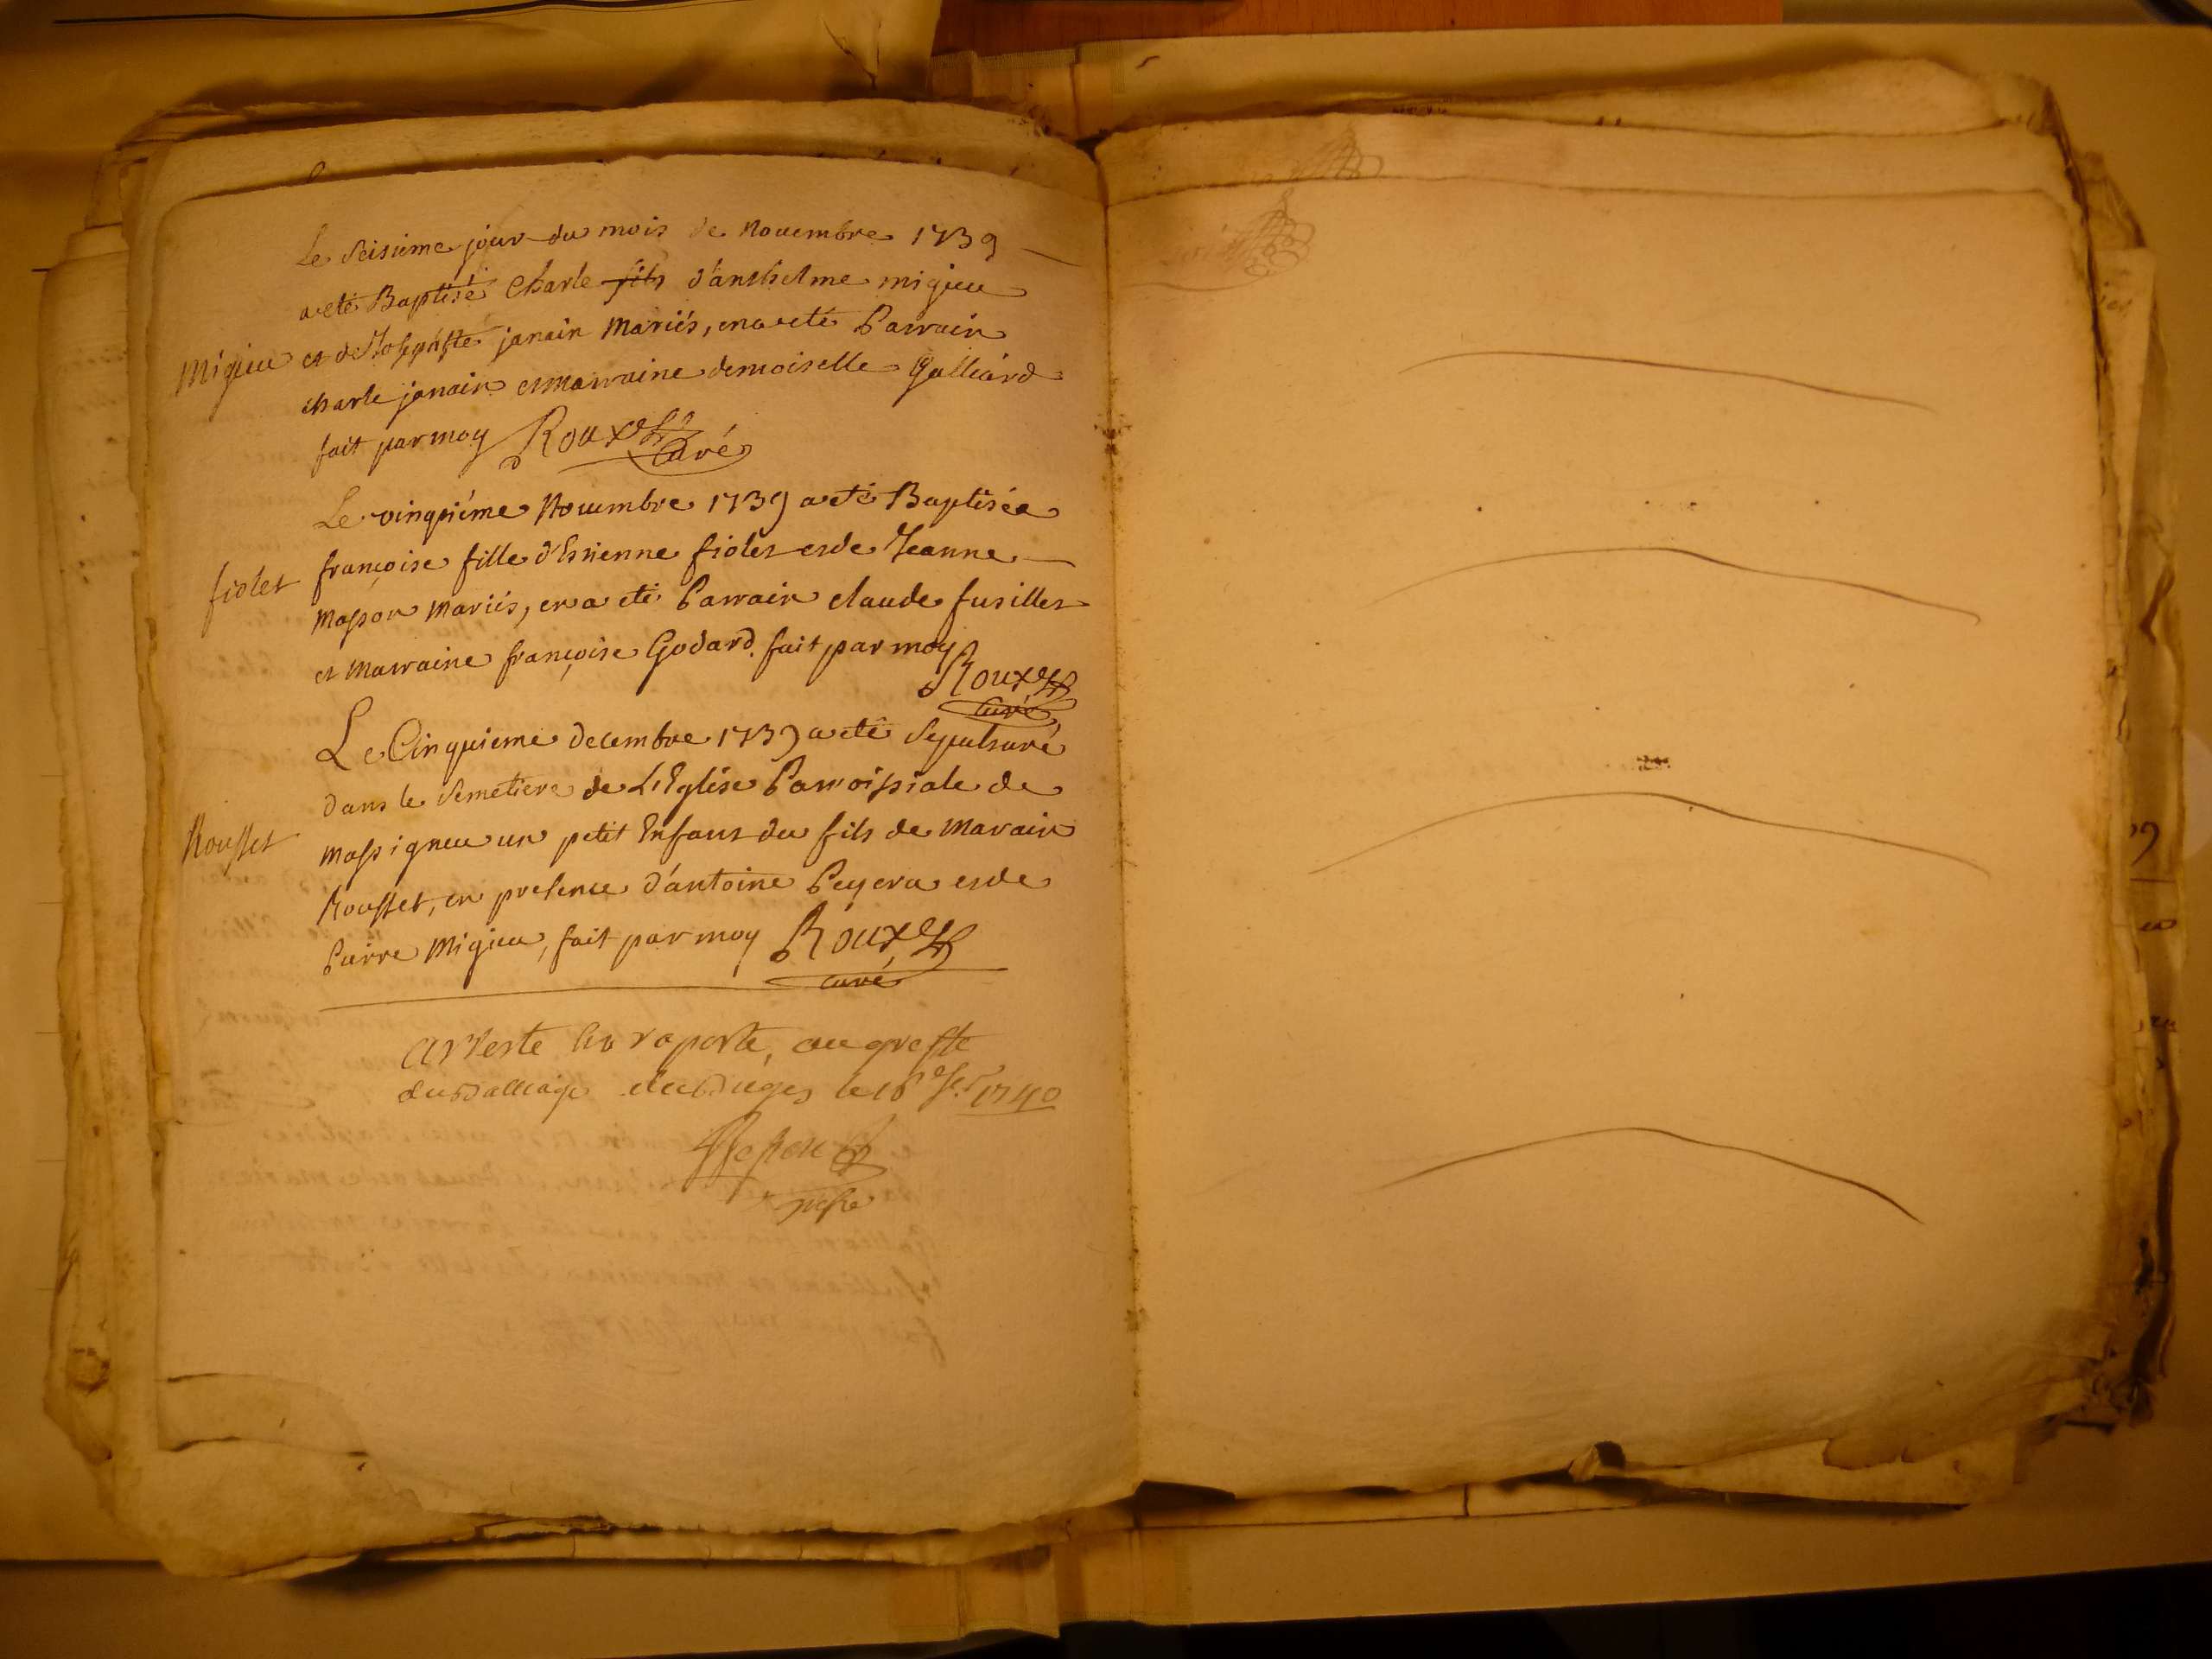 Le seisieme jour du mois de Novembre 1739
a eté Baptisé Charle fils d'anthelme migieu
Migieu et de Josephte janain Mariés, en a eté Parrain
charle janain et marraine demoiselle Galliard
fait par moy Roux curé
Le vinqtiéme Novembre 1739 a eté Baptisée
françoise fille d'Estienne fiolet et de Jeanne
fiolet
Masson Mariés, en a eté Parrain claude fusillet
et Marraine françoise Godard. fait par moy
Roux
curé
Le Cinquieme decembre 1739 a eté Sepulturé
dans le Semetiere de L'Eglise Parroissiale de
Rousset Massigneu un petit Enfant du fils de Marain
Rousset, en presence d'antoine Peyera et de
Pierre Migieu, fait par moy Roux
curé
Arreste raporte, au greffe
du Balliage du Bugey le 16 1740